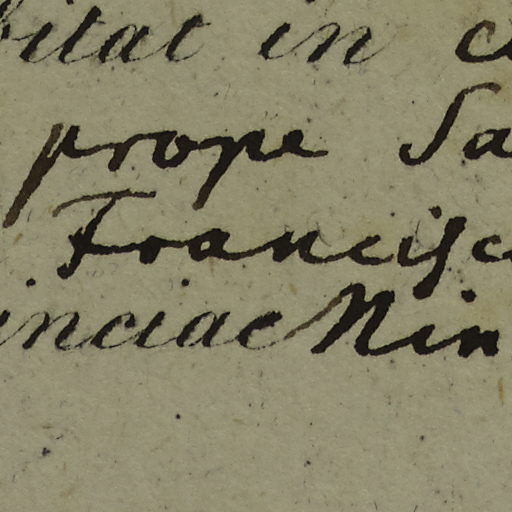 bitat in c
prope Sa
Francisc
inciae Nin